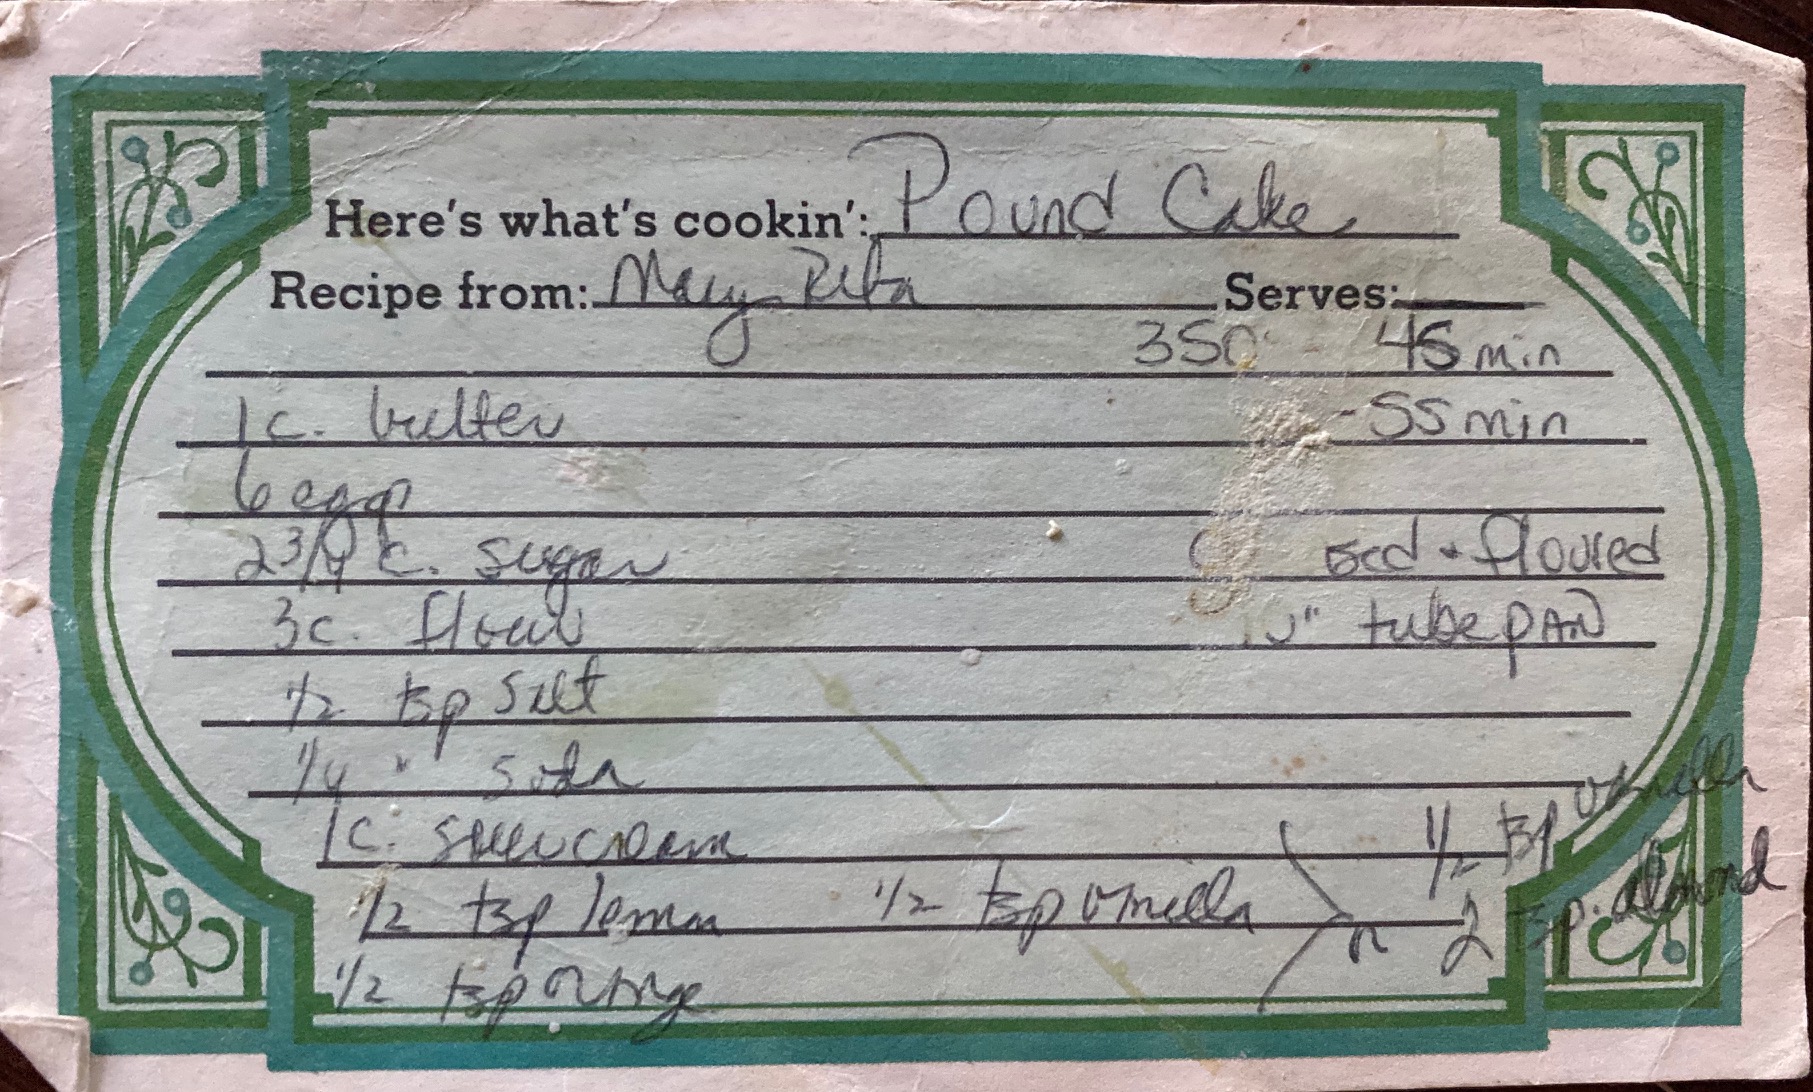 Here's what's cookin': Pound Cake
Recipe from: Mary Rita Serves:
350 45 min
1 c. butter - 55 min
6 eggs
2 3/4 c. sugar & floured
3 c. flour " tube pan
1/2 tsp salt
1/4 " soda
1 c. sour cream 1/2 tsp vanilla
1/2 tsp lemon 1/2 tsp vanilla } or 2 tsp. almond
1/2 tsp orange